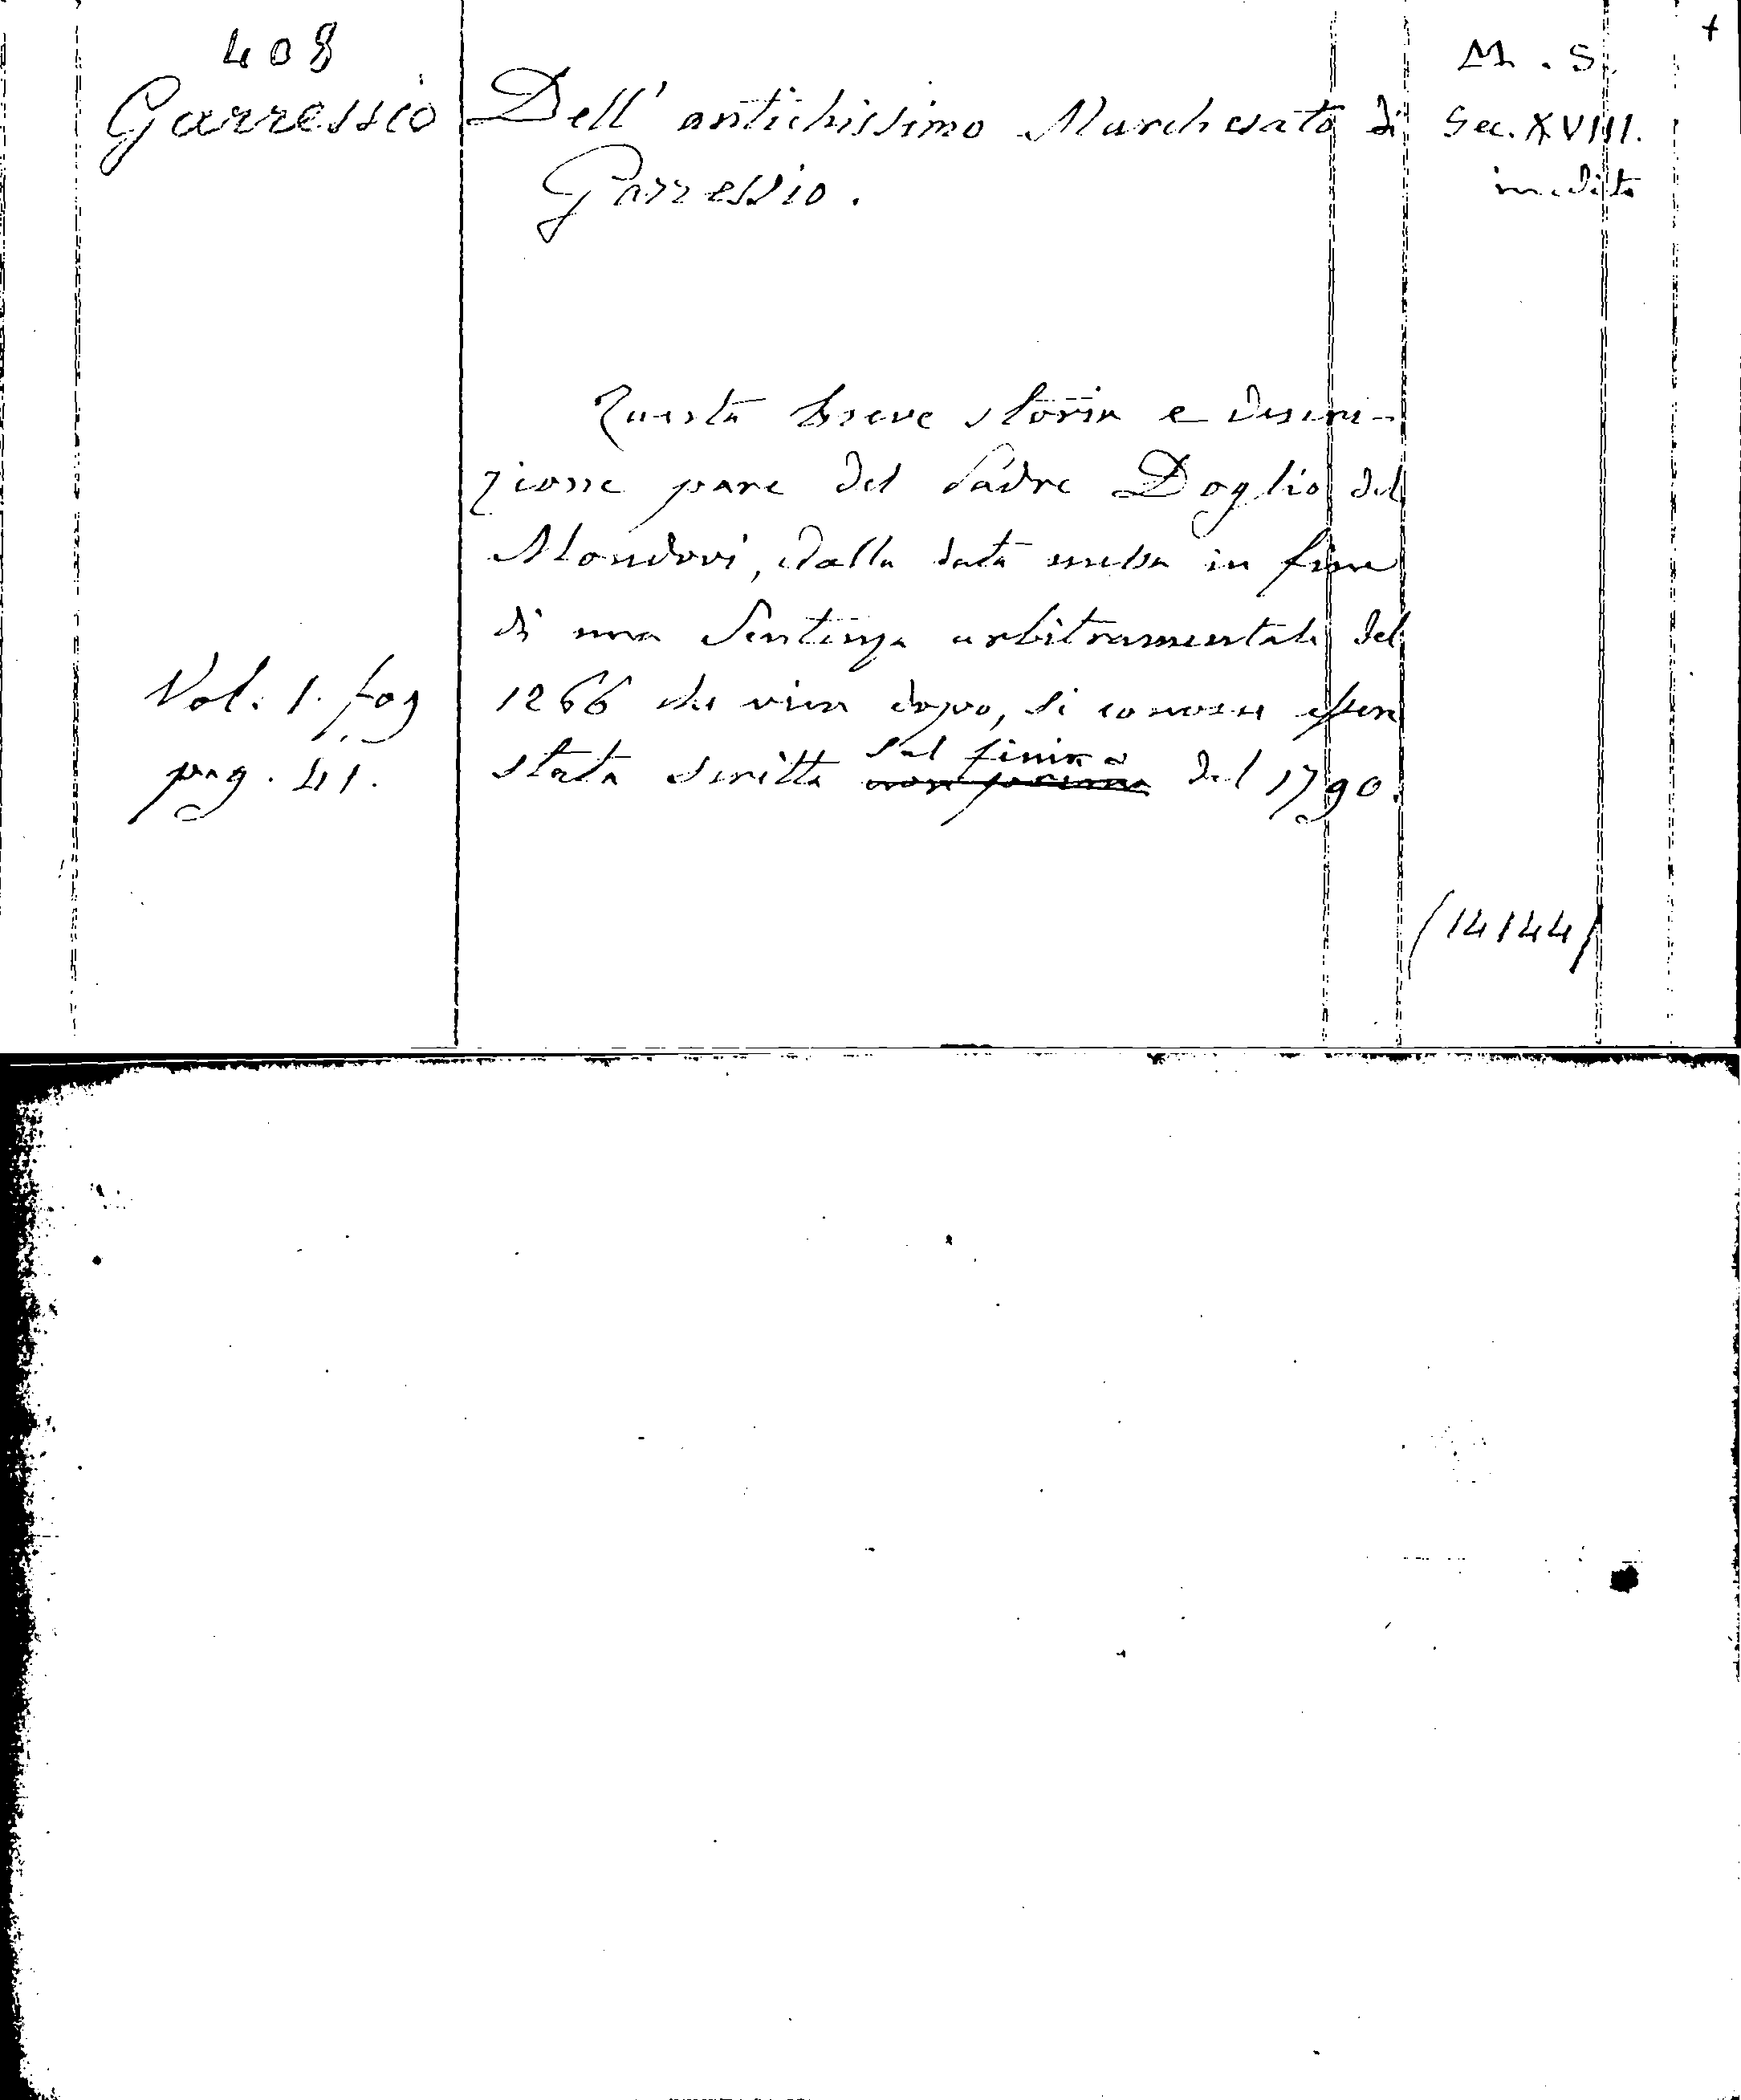 408
Garressio
Dell' antichissimo Marchesato di
Garressio.
M. S.
Sec. XVIII.
inedito
Questa breve storia e descri-
zione pare del Padre Doglio del
Mondovi, dalla data messa in fine
di una Sentenza arbitramentale del
1266 che viene dopo, si conosce essere
stata scritta sul finire non prima del 1790.
Vol. 1. fog
pag. 41.
(14144)